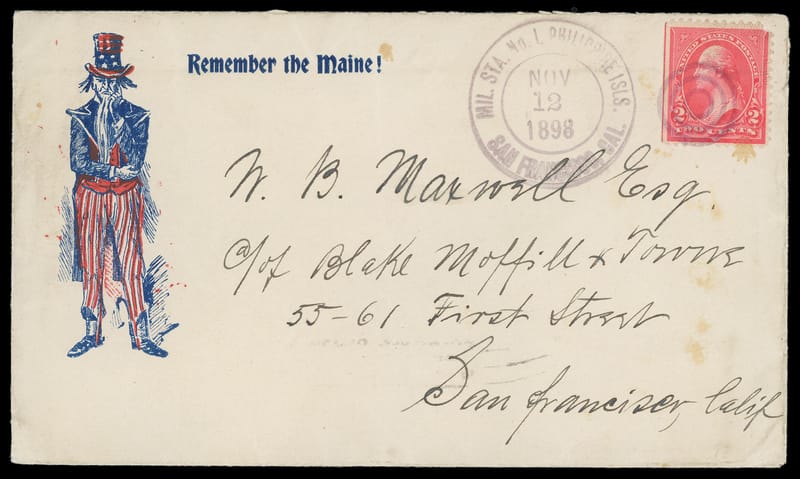 Remember the Maine!
MIL. STA. No. 1, PHILIPPINE ISLS.
NOV
12
1898
SAN FRANCISCO, CAL.
UNITED STATES POSTAGE
2 2
TWO CENTS
W. B. Maxwell Esq.
c/of Blake Moffill & Towne
55-61 First Street
San Francisco, Calif